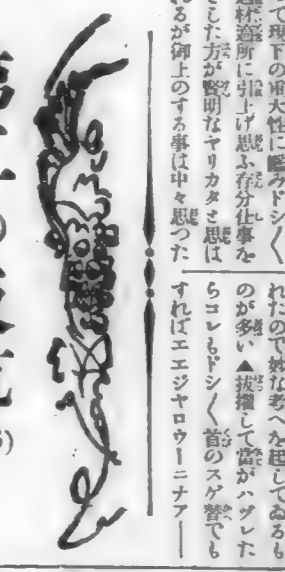 て現下の重大性に鑑みドシ〱
適材適所に引上げ思ふ存分仕事を
さした方が賢明なヤリカタと思は
れるが御上のする事は中々思つた
れたので妙な考へを起してゐるも
のが多い▲抜擢して當がハヅレた
らコレもドシ〱首のスゲ替でも
すればエエジヤロウーニナアー